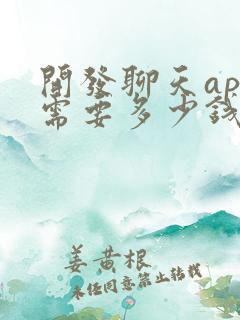 開發聊天ap
需要多少錢
姜黄根
未任同意禁止转载